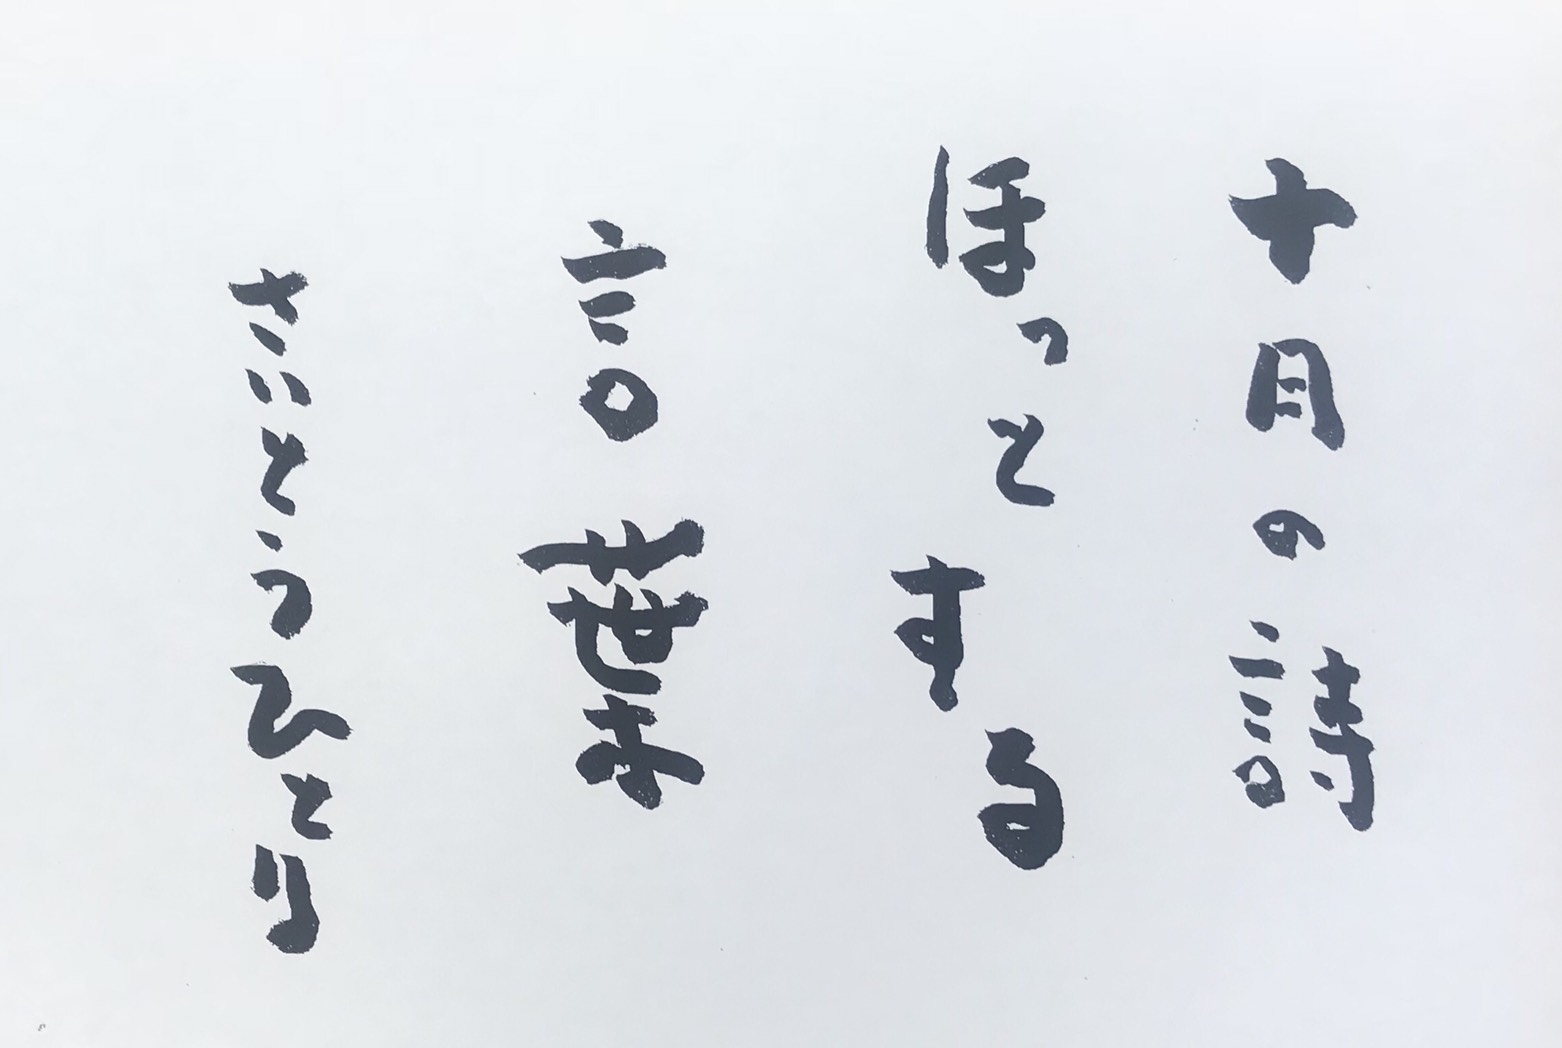 十月の詩
ほっとする
言葉
さいとうひとり